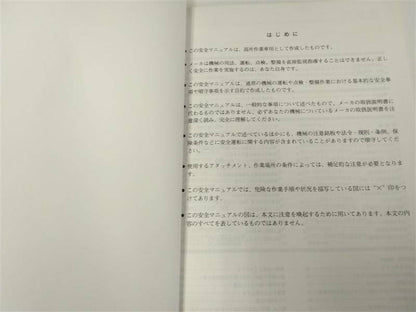 はじめに
●この安全マニュアルは、高所作業車用として作成したものです。
●メーカは機械の用法、運転、点検、整備を直接監視指導することはできません。正し
く安全に作業を実施するのは、あなた自身です。
●この安全マニュアルは、通常の機械の運転や点検・整備作業における基本的な安全事
項や順守事項を示す目的で作成したものです。
●この安全マニュアルは、一般的な事項について述べたもので、メーカの取扱説明書に
代わるものではありません。必ずあなたの機械についているメーカの取扱説明書を注
意深く読み、完全に理解してください。
●この安全マニュアルで述べているほかにも、機械の注意銘板や法令・規則・条例、保
険条件などに安全運転に関する内容が含まれていることがありますので順守してくださ
い。
●使用するアタッチメント、作業場所の条件によっては、補足的な注意が必要となりま
す。
●この安全マニュアルでは、危険な作業手順や状況を描写している図には“×”印をつ
けてあります。
●この安全マニュアルの図は、本文に注意を喚起するために用いてあります。本文の内
容のすべてを表しているものではありません。